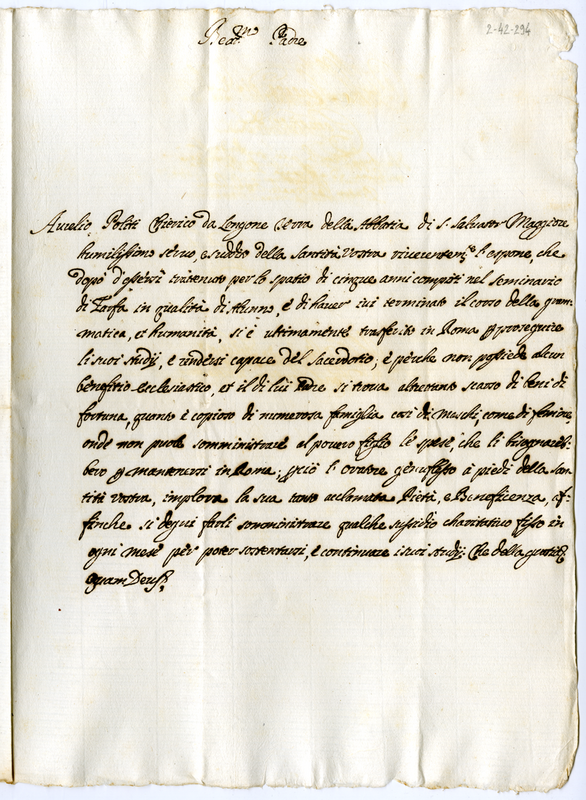 2-42-294
Beat.mo Padre
Aurelio Politi Chierico da Longone Terra della Abbatia di S. Salvator Maggiore
humilissimo servo, e suddito della Santità Vostra riverentem.e l'espone, che
dopo d'essersi trattenuto per lo spatio di cinque anni compiti nel seminario
di Farfa in qualità di Alunno, e di haver ivi terminato il corso della gram
matica, et humanità, si è ultimamente trasferito in Roma p proseguire
li suoi studij, e rendersi capace del sacerdotio; e perche non possiede alcun
benefitio eclesiastico, et il di lui Padre si trova altretanto scarso di beni di
fortuna, quanto è copioso di numerosa famiglia così di Maschi, come di femine,
onde non puole somministrare al povero figlio le spese, che li bisognareb
bero p mantenersi in Roma; perciò l'oratore genuflesso à piedi della San
tità Vostra, implora la sua tanto acclamata Pietà, e Beneficenza, af
finche si degni farli somministrare qualche sussidio charitativo fisso in
ogni mese per poter sostentarsi, e continuare i suoi studij; Che della gratia
quam Deus